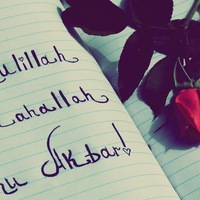 ulillah
ahallah
hu Akbar!